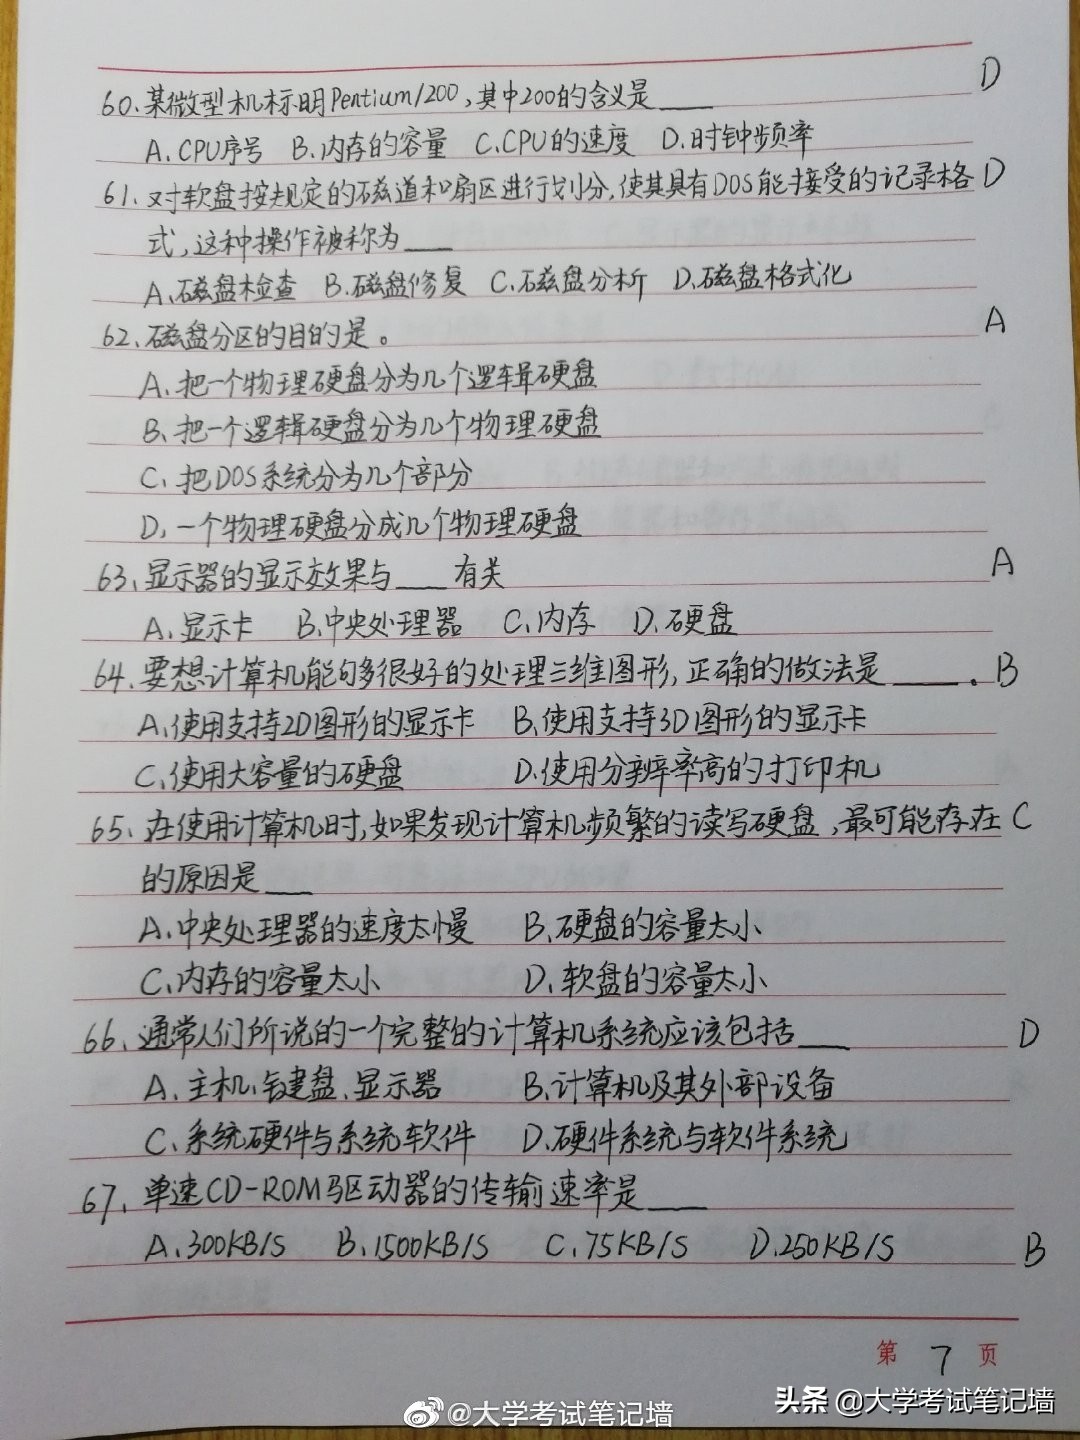 60、某微型机标明Pentium/200,其中200的含义是____ D
A、CPU序号 B、内存的容量 C、CPU的速度 D、时钟频率
61、对软盘按规定的磁道和扇区进行划分,使其具有DOS能接受的记录格 D
式,这种操作被称为____
A、磁盘检查 B、磁盘修复 C、磁盘分析 D、磁盘格式化
62、磁盘分区的目的是。 A
A、把一个物理硬盘分为几个逻辑硬盘
B、把一个逻辑硬盘分为几个物理硬盘
C、把DOS系统分为几个部分
D、一个物理硬盘分成几个物理硬盘
63、显示器的显示效果与____有关 A
A、显示卡 B、中央处理器 C、内存 D、硬盘
64、要想计算机能够很好的处理三维图形,正确的做法是____。 B
A、使用支持2D图形的显示卡 B、使用支持3D图形的显示卡
C、使用大容量的硬盘 D、使用分辨率高的打印机
65、在使用计算机时,如果发现计算机频繁的读写硬盘,最可能存在 C
的原因是____
A、中央处理器的速度太慢 B、硬盘的容量太小
C、内存的容量太小 D、软盘的容量太小
66、通常人们所说的一个完整的计算机系统应该包括____ D
A、主机、键盘、显示器 B、计算机及其外部设备
C、系统硬件与系统软件 D、硬件系统与软件系统
67、单速CD-ROM驱动器的传输速率是____
A、300KB/S B、1500KB/S C、75KB/S D、250KB/S B
第 7 页
@大学考试笔记墙
头条 @大学考试笔记墙